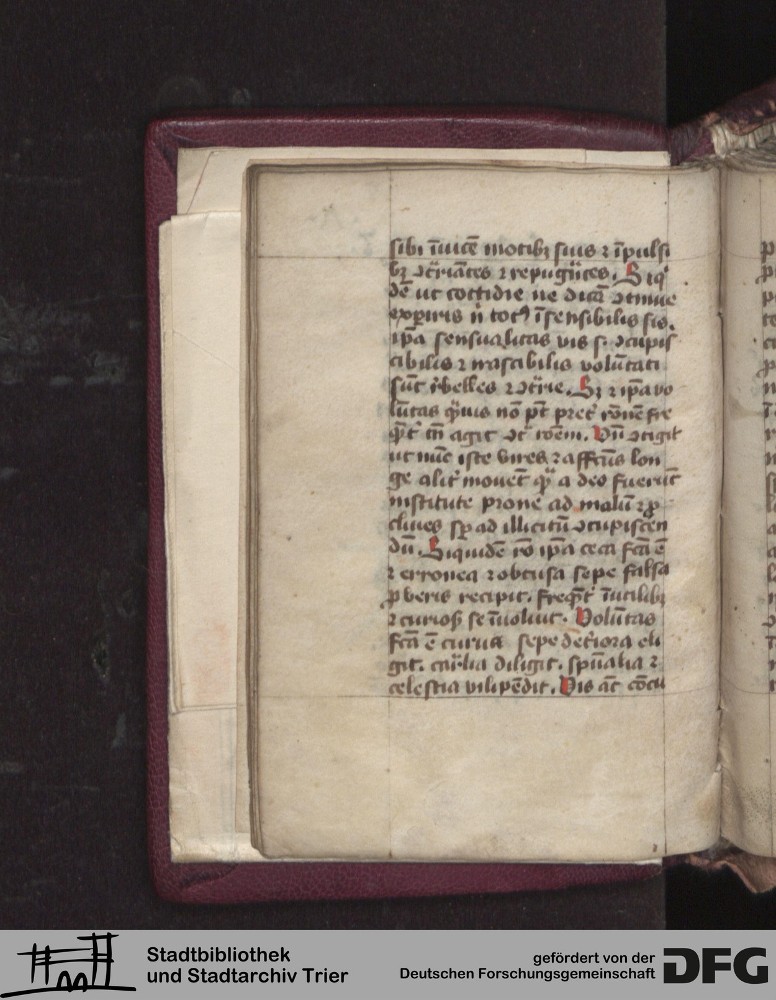 sibi īuicē motibꝫ suis ⁊ īpulsi
bꝫ ↄt͛riātes ⁊ repugn̄tes. Siq
dē ut cottidie ne dicā ↄtinue
exꝑiris n̄ totꝰ īsensibilis sis.
ip̄a sensualitas vis .s. ↄcupis
cibilis ⁊ irascibilis volūtati
sūt r̄belles ⁊ ↄt͛rie. Sꝫ ⁊ ip̄a vo
lūtas q̄uis nō pt̄ pret͛ rōnē fre
q̄t͛ tn̄ agit ↄt͛ roēm. Vn̄ ↄtigit
ut nūc iste vires ⁊ affctūs lon
ge alit͛ mouēt͛ qᷓ a deo fuerūt
institute prone ad malū ⁊ ꝓ
cliues sꝑ ad illicitū ↄcupiscen
dū. Siquidē rō ip̄a ceca fcā ē
⁊ erronea ⁊ obtusa sepe falsa
ꝓ veris recipit. freq̄t͛ īutilibꝫ
⁊ curiosꝭ se īuoluit. Volūtas
fcā ē curua sepe det͛iora eli
git. carͣlia diligit. spūalia ⁊
celestia vilipēdit. Vis āt cōcu
Stadtbibliothek
und Stadtarchiv Trier
gefördert von der
Deutschen Forschungsgemeinschaft
DFG